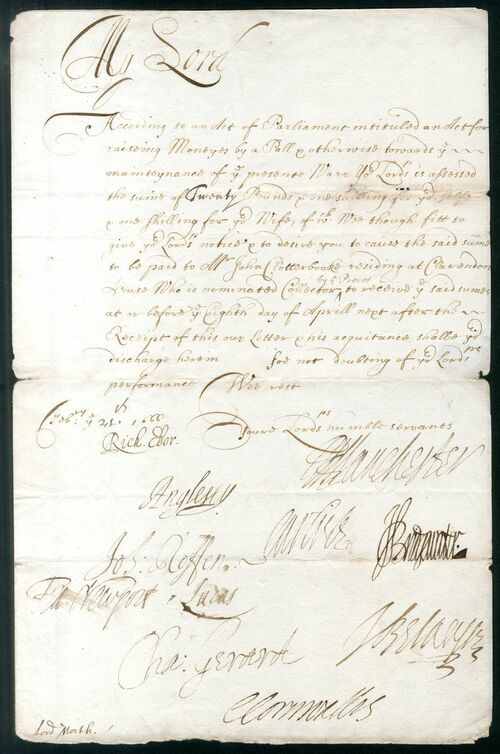 My Lord
According to an Act of Parliament intituled an Act for
raiseing Moneyes by a Poll & otherwise towards ye
mainteynance of ye presente Warr Yor Lordp is assessed
the sume of Twenty Pounds & one shilling for yor selfe
& one shilling for yor Wife, of wch Wee though fitt to
give yor Lordp notice & to desire you to cause the said sume
to be paid to Mr John Clotterbooke residing at Clarendon
House Who is nominated Collector by ye Peeres to receive ye said sumes
at or before ye Eighth day of Aprill next after the
Receipt of this our Letter & his acquitance shalbe yor
discharge herein soe not doubting of yor Lordpps
performance Wee rest
Youre Lordpps humble servants
Rich. Ebor.
Manchester
Anglesey
Carlisle
J Bridgewater
Joh: Roffen.
Fr Newport
Lucas
Cha: Gerard
J Belasyse
Cornwallis
Lord Morsh.